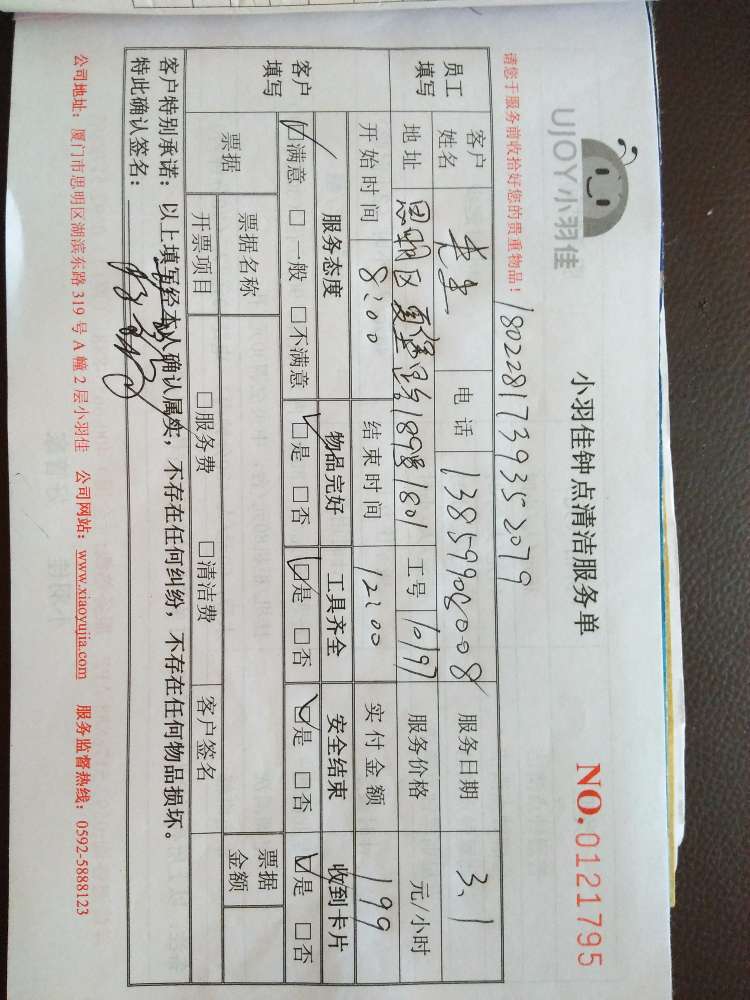 UJOY小羽佳
小羽佳钟点清洁服务单
NO.0121795
请您于服务前收拾好您的贵重物品！
180228173935 2079
员工填写 客户姓名 电话 13859908008 服务日期 3.1
地址 思明区 189号1801 工号 10197 服务价格 元/小时
开始时间 8:00 结束时间 12:00 实付金额 199
客户填写 服务态度 物品完好 工具齐全 安全结束 收到卡片
☑满意 □一般 □不满意 ☑是 □否 ☑是 □否 ☑是 □否 ☑是 □否
票据 票据名称 票据金额
开票项目 □服务费 □清洁费 客户签名
客户特别承诺：以上填写经本人确认属实，不存在任何纠纷，不存在任何物品损坏。
特此确认签名：
公司地址：厦门市思明区湖滨东路 319 号 A 幢 2 层小羽佳 公司网站：www.xiaoyujia.com 服务监督热线：0592-5888123